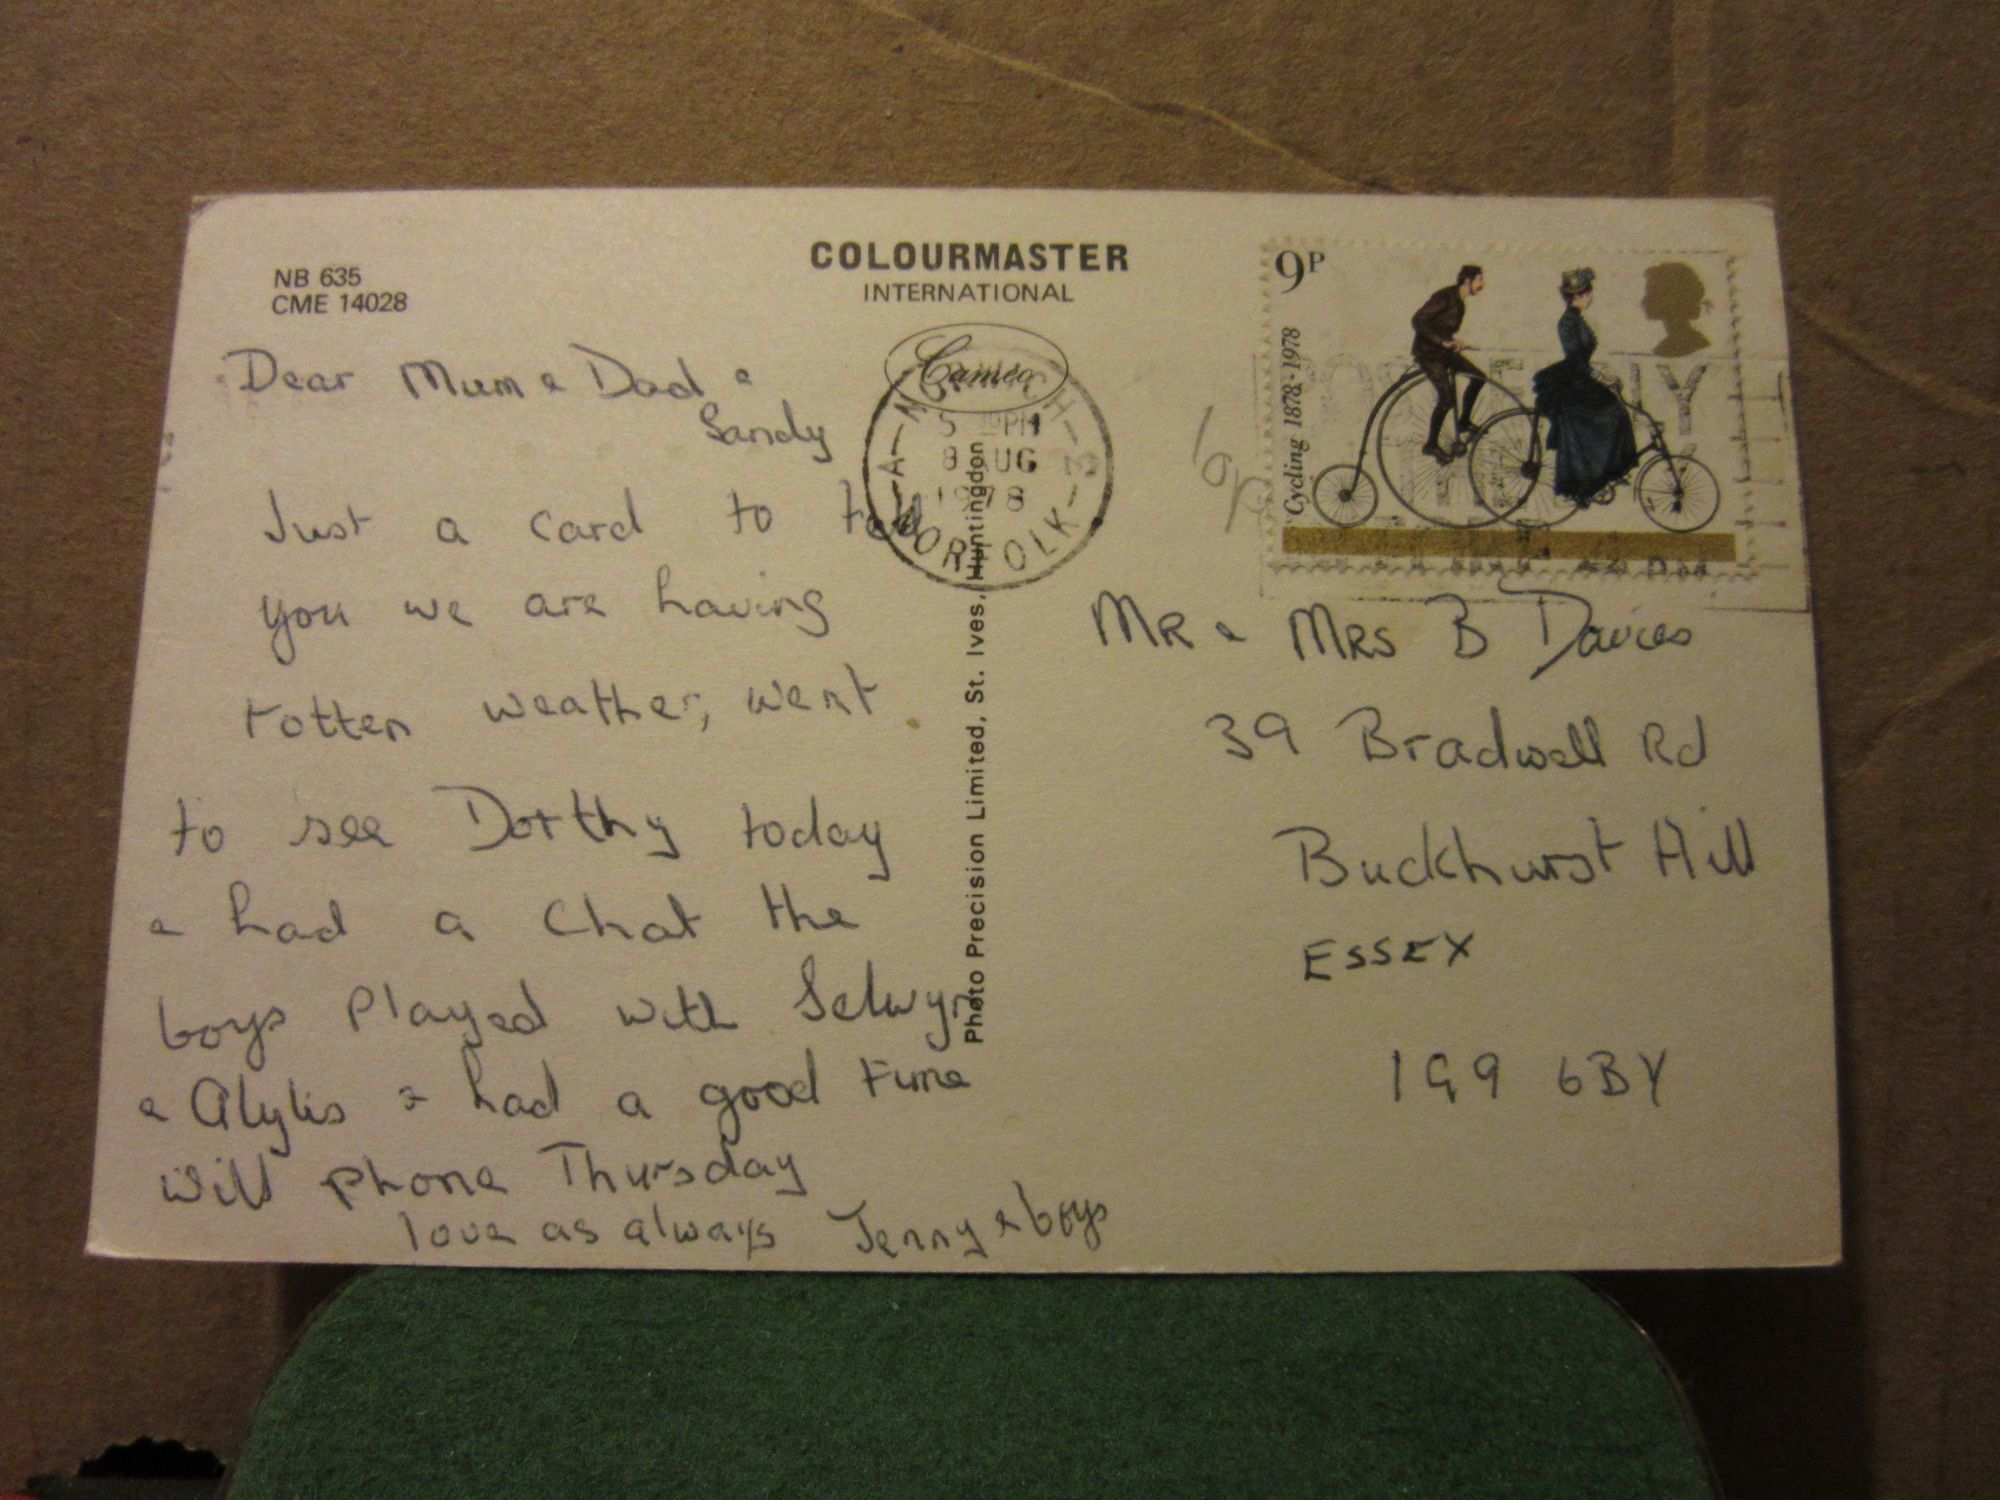 NB 635
CME 14028
COLOURMASTER
INTERNATIONAL
Cameo
Dear Mum & Dad &
Sandy
Just a card to tell
you we are having
rotten weather, went
to see Dorthy today
& had a chat the
boys played with Selwyn
& Alylis & had a good time
will phone Thursday
love as always Jenny & boys
Photo Precision Limited, St. Ives, Huntingdon
NORWICH
5 PM
8 AUG
1978
A NORFOLK
9P
Cycling 1878-1978
10p
MR & MRS B Davies
39 Bradwell Rd
Buckhurst Hill
ESSEX
IG9 6BY